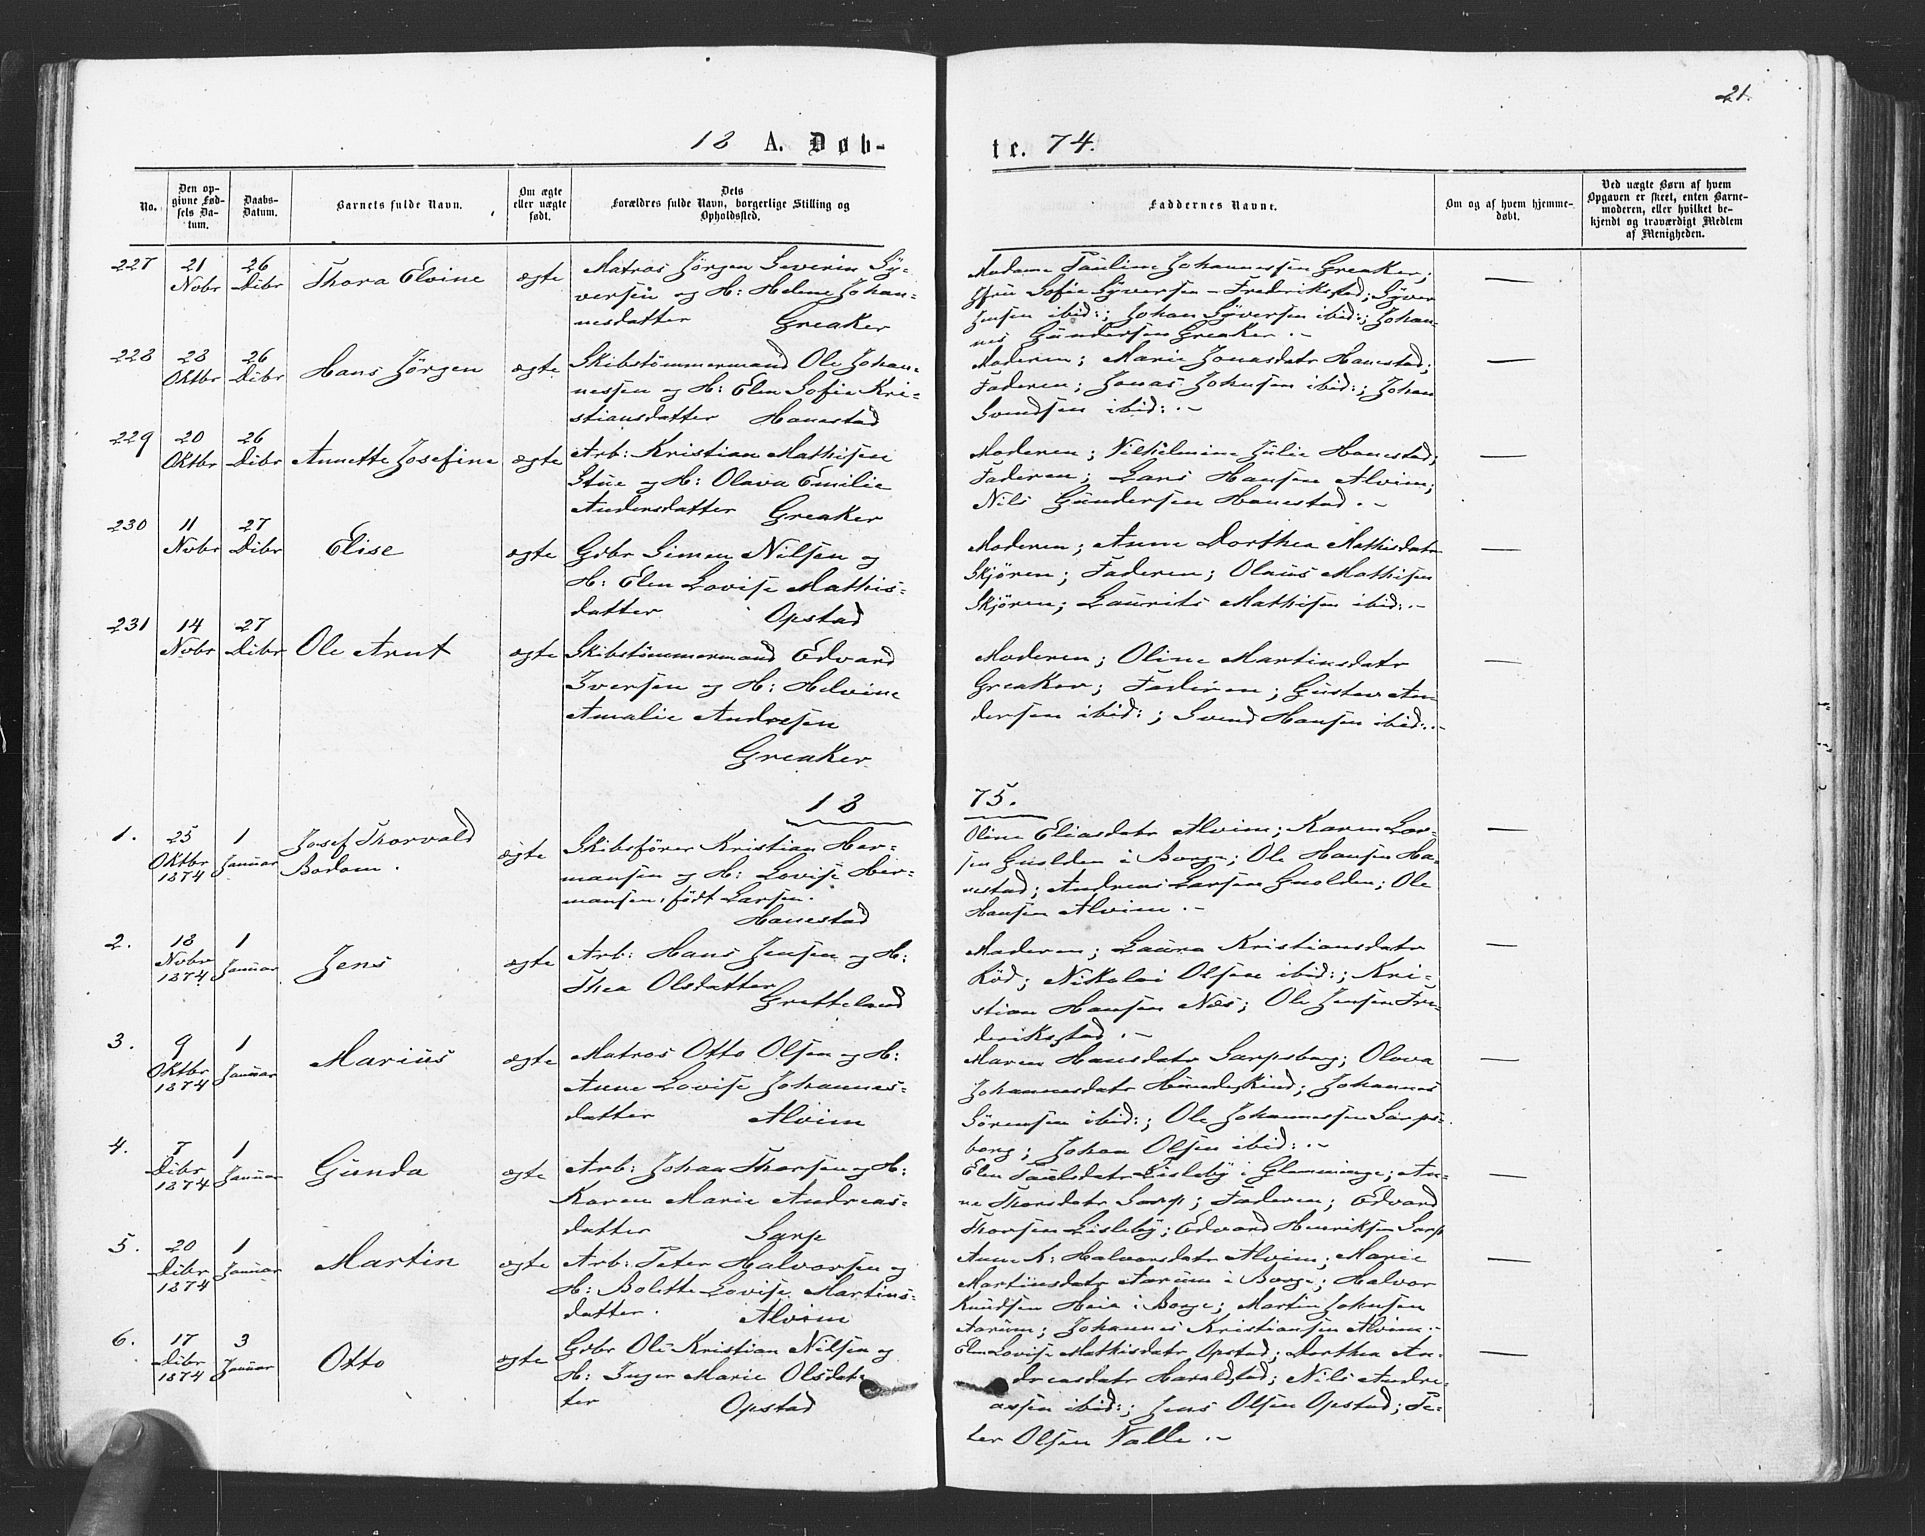 21.
18 A. Døb-
te. 74.
No.
Den op-
givne Fød-
sels Da-
tum.
Daabs-
Datum.
Barnets fulde Navn.
Om ægte
eller uægte
født.
Dets
Forældres fulde Navn, borgerlige Stilling og
Opholdssted.
Faddernes Navne.
Om og af hvem hjemme-
døbt.
Ved uægte Børn af hvem
Opgaven er skeet, enten Barne-
moderen, eller hvilket be-
kjendt og troværdigt Medlem
af Menigheden.
227
21
Nobr
26
Dibr
Thora Elvine
ægte
Matros Jörgen Severin Sy-
versen og H: Helene Johan-
nesdatter Greaker
Madame Pauline Johannessen Greaker;
Sofie Syversen – Frederikstad; Syver
Jensen ibid:; Johan Syversen ibid:; Johan-
nes Gundersen Greaker. –
—
228
28
Oktbr
26
Dibr
Hans Jörgen
ægte
Skibstömmermand Ole Johan-
nessen og H: Elen Sofie Kri-
stiansdatter Hanestad
Moderen; Marie Jonasdatr Hanestad;
Faderen; Jonas Johnsen ibid:; Johan
Svendsen ibid:. –
—
229
20
Oktbr
26
Dibr
Annette Josefine
ægte
Arb: Kristian Mathisen
Stue og H: Olava Emilie
Andersdatter Greaker
Moderen; Vilhelmine Julie Hanestad;
Faderen; Lars Hansen Alvim;
Nils Gundersen Hanestad. –
—
230
11
Nobr
27
Dibr
Elise
ægte
Grbr Simen Nilsen og
H: Elen Lovise Mathis-
datter Opstad
Moderen; Anne Dorthea Mathisdatr
Skjören; Faderen; Olaus Mathisen
Skjören; Laurits Mathisen ibid:. –
—
231
14
Nobr
27
Dibr
Ole Arnt
ægte
Skibstömmermand Edvard
Iversen og H: Helvine
Amalie Andresen
Greaker
Moderen; Oline Martinsdatr
Greaker; Faderen; Gustav An-
dersen ibid:; Svend Hansen ibid:. –
—
18
75.
1.
25
Oktbr
1874
1
Januar
Josef Thorvald
Bodom.
ægte
Skibsförer Kristian Her-
mansen og H: Lovise Her-
mansen, födt Larsen.
Hanestad
Oline Eliasdatr Alvim; Karen Lar-
sen Guslden i Borge; Ole Hansen Ha-
nestad; Andreas Larsen; Ole
Hansen Alvim. –
—
2.
18
Nobr
1874
1
Januar
Jens
ægte
Arb: Hans Jensen og H:
Thea Olsdatter
Gretteland
Moderen; Laura Kristiansdatr
Röd; Nikolai Olsen ibid:; Kri-
stian Hansen Næs; Ole Jensen Fre-
derikstad. –
—
3.
9
Oktbr
1874
1
Januar
Marius
ægte
Matros Otto Olsen og H:
Anne Lovise Johannes-
datter Alvim
Maren Hansdatr Sarpsborg; Olava
Johannesdatr Hundskind; Johannes
Sörensen ibid:; Ole Johannessen Sarps-
borg; Johan Olsen ibid:. –
—
4.
7
Dibr
1874
1
Januar
Gunda
ægte
Arb: Johan Thorsen og H:
Karen Marie Andreas-
datter Sarp
Elen Paulsdatr Lisleby i Glemminge; An-
ne Thorsdatr Sarp; Faderen; Edvard
Thorsen Lisleby; Edvard Henriksen Sarp
—
5.
20
Dibr
1874
1
Januar
Martin
ægte
Arb: Peter Halvorsen og
H: Bolette Lovise Martins-
datter. Alvim
Anne K: Halvorsdatr Alvim; Marie
Martinsdatr Aarum i Borge; Halvor
Knudsen Heia i Borge; Martin Johnsen
Aarum; Johannes Kristiansen Alvim. –
—
6.
17
Dibr
1874
3
Januar
Otto
ægte
Grbr Ole Kristian Nilsen og
H: Inger Marie Olsdat-
ter Opstad
Elen Lovise Mathisdatr Opstad; Dorthea An-
dreasdatr Haralstad; Nils Andre-
assen ibid:; Jens Olsen Opstad; Pe-
ter Olsen Valle. –
—